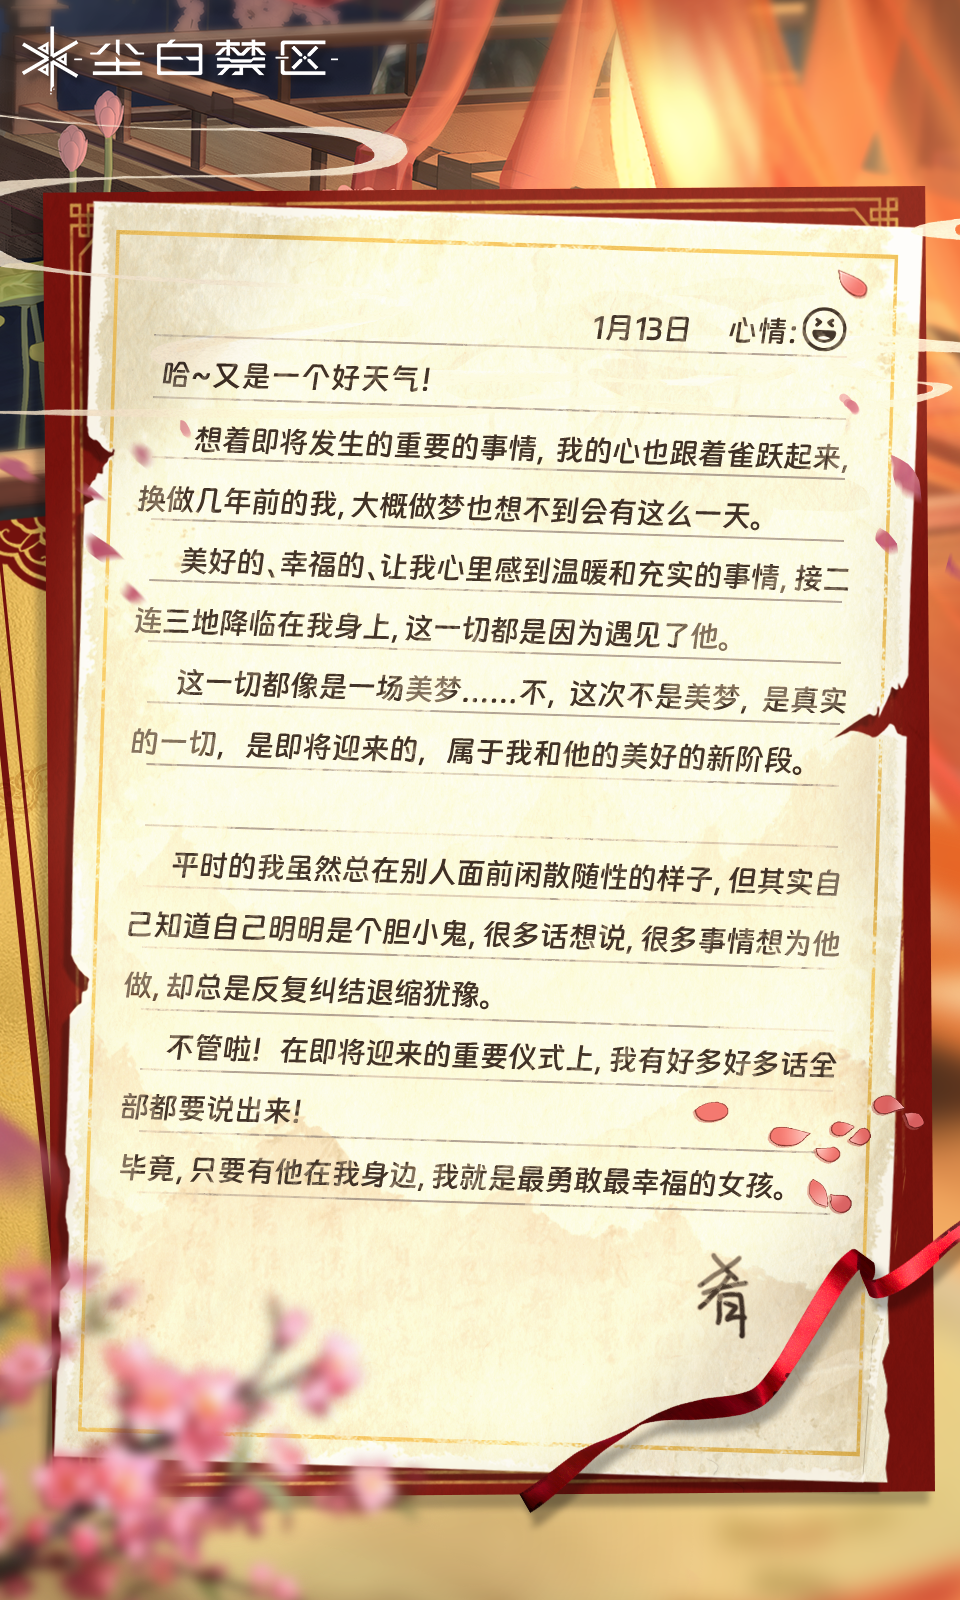 尘白禁区
1月13日 心情:
哈~又是一个好天气!
想着即将发生的重要的事情,我的心也跟着雀跃起来,
换做几年前的我,大概做梦也想不到会有这么一天。
美好的、幸福的、让我心里感到温暖和充实的事情,接二
连三地降临在我身上,这一切都是因为遇见了他。
这一切都像是一场美梦......不,这次不是美梦,是真实
的一切,是即将迎来的,属于我和他的美好的新阶段。
平时的我虽然总在别人面前闲散随性的样子,但其实自
己知道自己明明是个胆小鬼,很多话想说,很多事情想为他
做,却总是反复纠结退缩犹豫。
不管啦!在即将迎来的重要仪式上,我有好多好多话全
部都要说出来!
毕竟,只要有他在我身边,我就是最勇敢最幸福的女孩。
肴